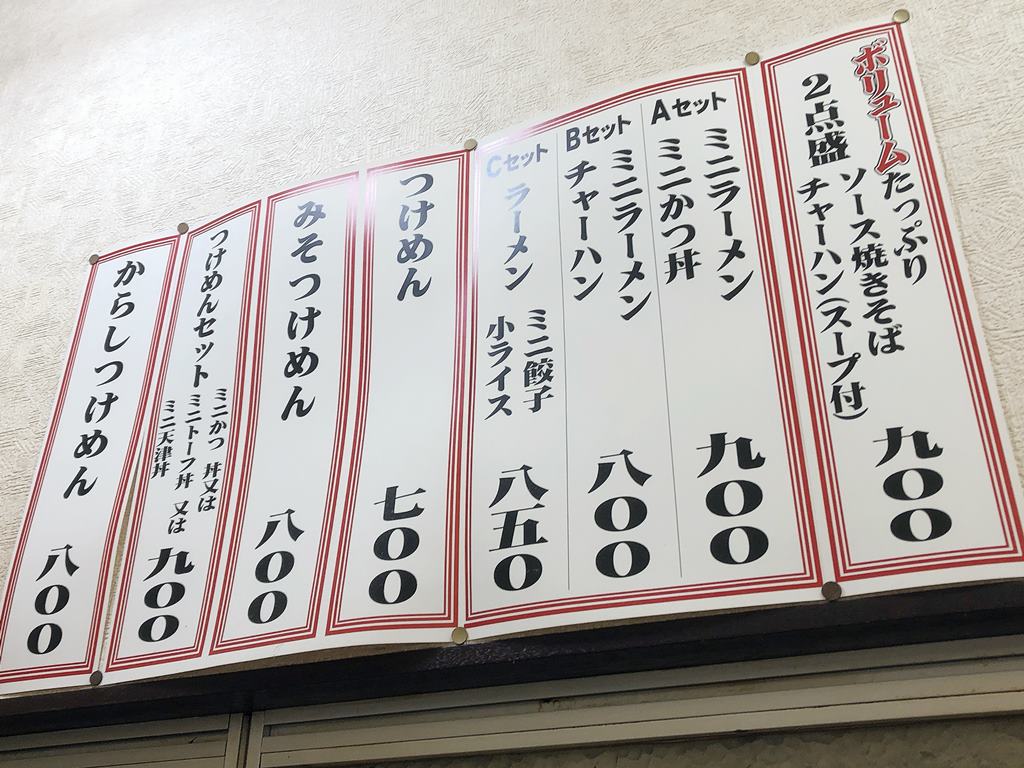 ボリュームたっぷり
2点盛
ソース焼きそば
チャーハン(スープ付)
九〇〇
Aセット
ミニラーメン
ミニかつ丼
九〇〇
Bセット
ミニラーメン
チャーハン
八〇〇
Cセット
ラーメン
ミニ餃子
小ライス
八五〇
つけめん
七〇〇
みそつけめん
八〇〇
つけめんセット
ミニかつ丼又は
ミニトーフ丼 又は
ミニ天津丼
九〇〇
からしつけめん
八〇〇